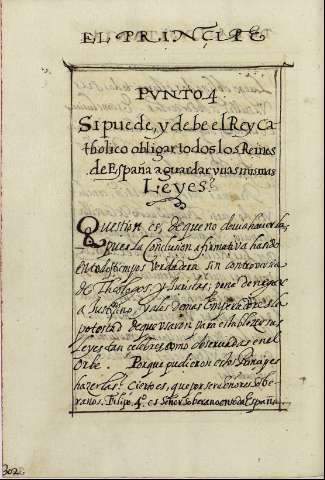 EL PRINÇIPE
PVNTO 4
Si puede, y debe el Rey Ca
tholico obligar todos los Reinos
de España a guardar vnas mismas
Leyes?
Question es, de que no deuia hauerla,
pues la Conclusion afirmatiua han da
en todos tiempos Verdadera sin controuersia
de Theologos, y Iuristas, pena de negar
a Iustiniano y a los demas Emperadores la
potestad de que vsaron para establezer sus
Leyes tan celebres, como obseruadas en el
Orbe. Porque pudieron estos Principes
hazerlas? Cierto es, que por ser Señores Sobe
ranos. Felipe 4º. es Señor Soberano en toda España
302